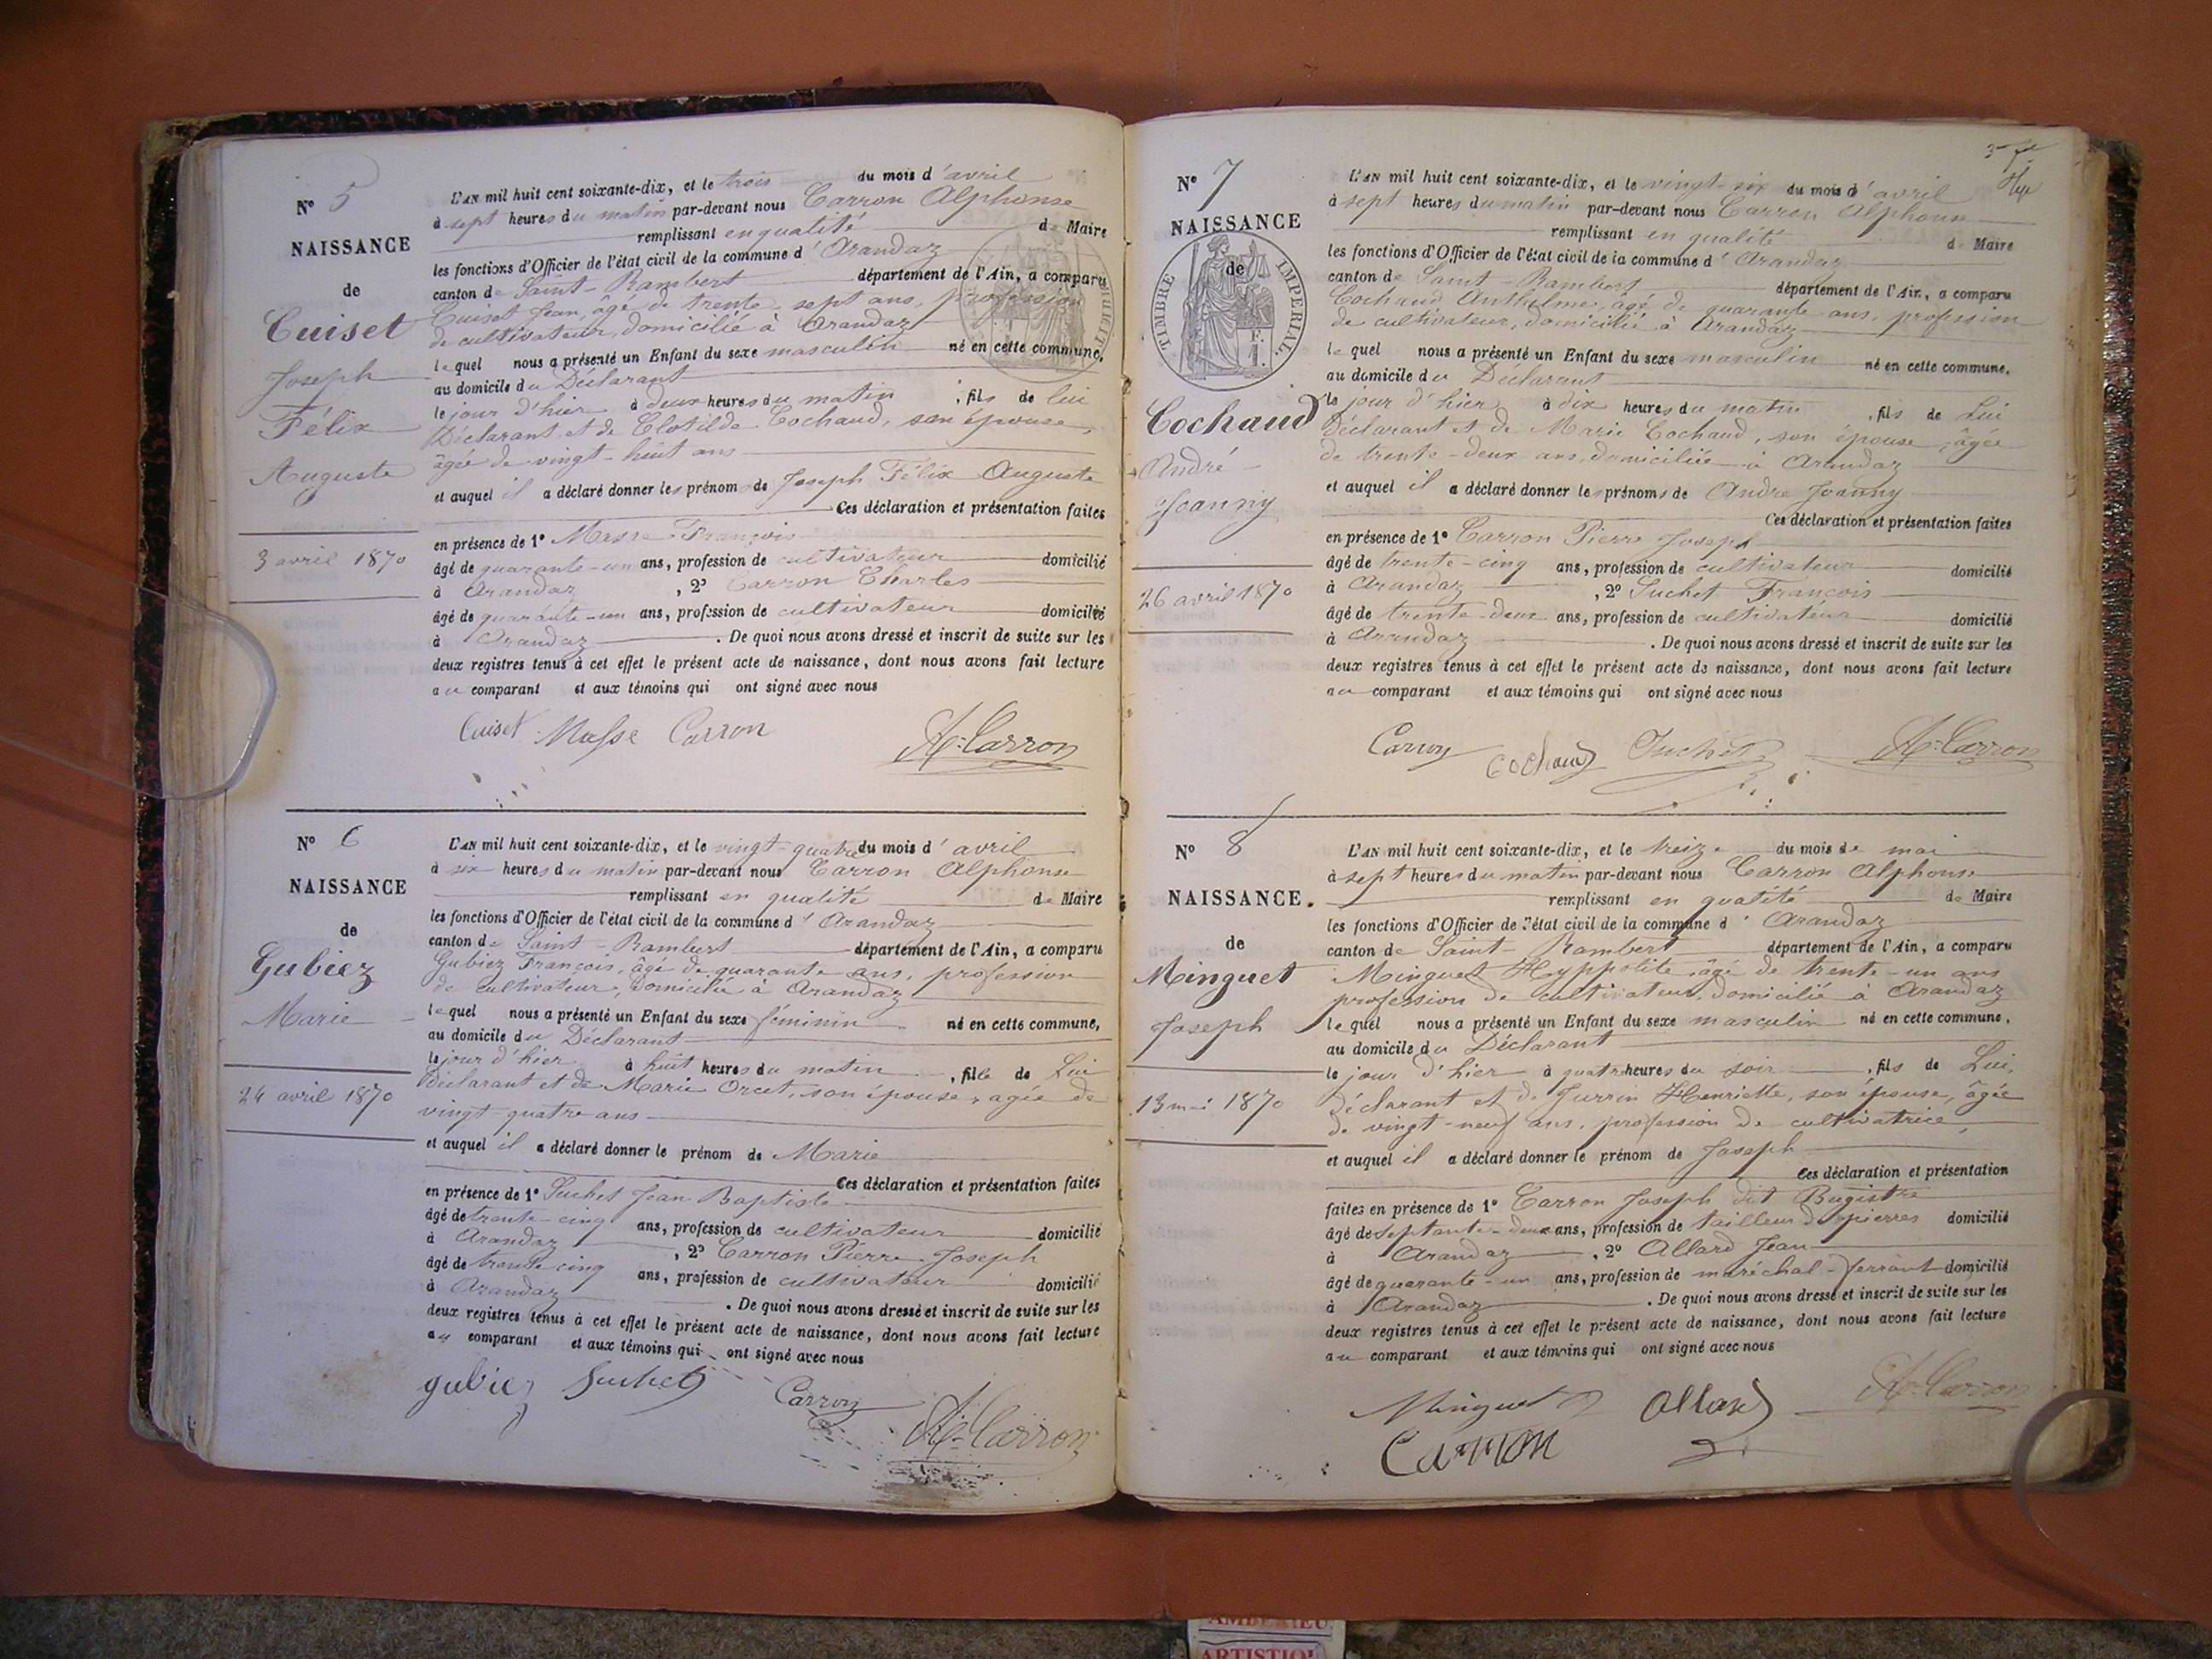 N° 5
NAISSANCE
de
Cuiset
Joseph
Félix
Auguste
3 avril 1870
L'AN mil huit cent soixante-dix, et le trois du mois d'avril
à sept heures du matin par-devant nous Carron Alphonse
remplissant en qualité de Maire
les fonctions d'Officier de l'état civil de la commune d'Arandaz
canton de Saint-Rambert département de l'Ain, a comparu
Cuiset Jean, âgé de trente-sept ans, profession
de cultivateur, domicilié à Arandaz
lequel nous a présenté un Enfant du sexe masculin né en cette commune,
au domicile du Déclarant
le jour d'hier à deux heures du matin, fils de lui
Déclarant et de Clotilde Cochaud, son épouse,
âgée de vingt-huit ans
et auquel il a déclaré donner les prénoms de Joseph Félix Auguste
Ces déclaration et présentation faites
en présence de 1° Masse François
âgé de quarante-un ans, profession de cultivateur domicilié
à Arandaz, 2° Carron Charles
âgé de quarante-un ans, profession de cultivateur domicilié
à Arandaz. De quoi nous avons dressé et inscrit de suite sur les
deux registres tenus à cet effet le présent acte de naissance, dont nous avons fait lecture
au comparant et aux témoins qui ont signé avec nous
Cuiset Masse Carron A. Carron
N° 6
NAISSANCE
de
Gubiez
Marie
24 avril 1870
L'AN mil huit cent soixante-dix, et le vingt-quatre du mois d'avril
à six heures du matin par-devant nous Carron Alphonse
remplissant en qualité de Maire
les fonctions d'Officier de l'état civil de la commune d'Arandaz
canton de Saint-Rambert département de l'Ain, a comparu
Gubiez François, âgé de quarante ans, profession
de cultivateur, domicilié à Arandaz
lequel nous a présenté un Enfant du sexe féminin né en cette commune,
au domicile du Déclarant
le jour d'hier à huit heures du matin, fille de Lui
Déclarant et de Marie Orcet, son épouse, agée de
vingt-quatre ans
et auquel il a déclaré donner le prénom de Marie
Ces déclaration et présentation faites
en présence de 1° Suchet Jean Baptiste
âgé de trente-cinq ans, profession de cultivateur domicilié
à Arandaz, 2° Carron Pierre Joseph
âgé de trente cinq ans, profession de cultivateur domicilié
à Arandaz. De quoi nous avons dressé et inscrit de suite sur les
deux registres tenus à cet effet le présent acte de naissance, dont nous avons fait lecture
au comparant et aux témoins qui ont signé avec nous
gubiez Suchet Carron A. Carron
N° 7
NAISSANCE
de
TIMBRE IMPERIAL
F.
1.
Cochaud
André
Joanny
26 avril 1870
L'AN mil huit cent soixante-dix, et le vingt-six du mois d'avril
à sept heures du matin par-devant nous Carron Alphonse
remplissant en qualité de Maire
les fonctions d'Officier de l'état civil de la commune d'Arandaz
canton de Saint-Rambert département de l'Ain, a comparu
Cochaud Anthelme, âgé de quarante ans, profession
de cultivateur, domicilié à Arandaz
lequel nous a présenté un Enfant du sexe masculin né en cette commune,
au domicile du Déclarant
le jour d'hier à dix heures du matin, fils de Lui
Déclarant et de Marie Cochaud, son épouse, âgée
de trente-deux ans, domiciliée à Arandaz
et auquel il a déclaré donner les prénoms de André Joanny
Ces déclaration et présentation faites
en présence de 1° Carron Pierre Joseph
âgé de trente-cinq ans, profession de cultivateur domicilié
à Arandaz, 2° Suchet François
âgé de trente-deux ans, profession de cultivateur domicilié
à Arandaz. De quoi nous avons dressé et inscrit de suite sur les
deux registres tenus à cet effet le présent acte de naissance, dont nous avons fait lecture
au comparant et aux témoins qui ont signé avec nous
Carron Cochaud Suchet A. Carron
N° 8
NAISSANCE.
de
Minguet
Joseph
13 mai 1870
L'AN mil huit cent soixante-dix, et le treize du mois de mai
à sept heures du matin par-devant nous Carron Alphonse
remplissant en qualité de Maire
les fonctions d'Officier de l'état civil de la commune d'Arandaz
canton de Saint-Rambert département de l'Ain, a comparu
Minguet Hyppolite, âgé de trente-un ans
profession de cultivateur, domicilié à Arandaz
lequel nous a présenté un Enfant du sexe masculin né en cette commune,
au domicile du Déclarant
le jour d'hier à quatre heures du soir, fils de Lui,
Déclarant et de Jurrin Henriette, son épouse, âgée
de vingt-neuf ans, profession de cultivatrice,
et auquel il a déclaré donner le prénom de Joseph
Ces déclaration et présentation
faites en présence de 1° Carron Joseph dit Bugistre
âgé de septante-deux ans, profession de tailleur de pierres domicilié
à Arandaz, 2° Allard Jean
âgé de quarante-un ans, profession de maréchal-ferrant domicilié
à Arandaz. De quoi nous avons dressé et inscrit de suite sur les
deux registres tenus à cet effet le présent acte de naissance, dont nous avons fait lecture
au comparant et aux témoins qui ont signé avec nous
Minguet Allard A. Carron
Carron